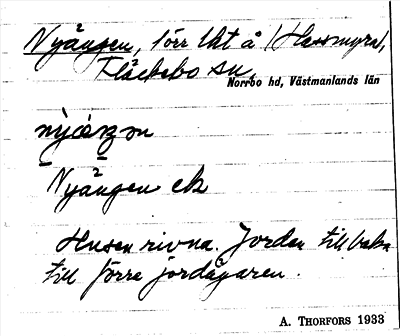 Nyängen, förr lht å (Hassmyra),
Fläckebo sn,
Norrbo hd, Västmanlands län
Nyängen ek
Husen rivna. Jorden tillbaka
till förre jordägaren.
A. Thorfors 1933